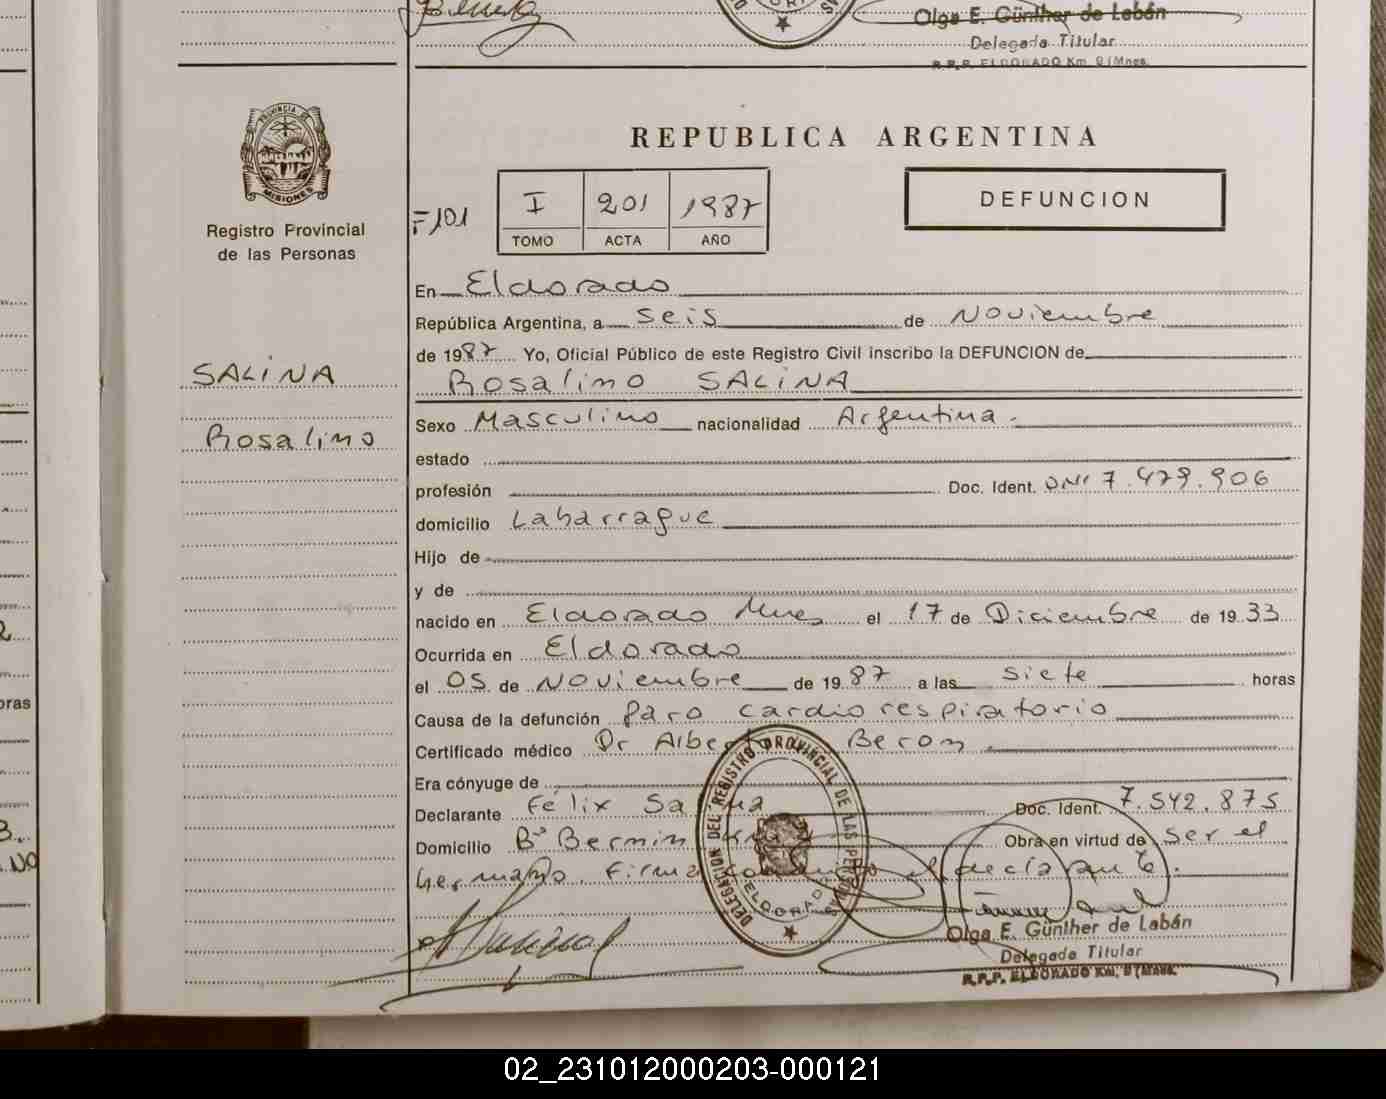 Olga E. Günther de Labán
Delegada Titular
R.P.P. ELDORADO Km. 9 (Mnes.
PROVINCIA DE
MISIONES
Registro Provincial
de las Personas
SALINA
Rosalino
REPUBLICA ARGENTINA
F 101
I 201 1987
TOMO ACTA AÑO
DEFUNCION
En Eldorado
República Argentina, a seis de Noviembre
de 1987 Yo, Oficial Público de este Registro Civil inscribo la DEFUNCION de
Rosalino SALINA
Sexo Masculino nacionalidad Argentina.
estado
profesión Doc. Ident. DNI 7.479.906
domicilio Labarrague
Hijo de
y de
nacido en Eldorado Mnes el 17 de Diciembre de 1933
Ocurrida en Eldorado
el 05 de Noviembre de 1987 a las siete horas
Causa de la defunción Paro cardio respiratorio
Certificado médico Dr Alberto Beron
Era cónyuge de
Declarante Felix Salina Doc. Ident. 7.542.875
Domicilio Bº Obra en virtud de ser el
hermano. Firma el declarante.
DELEGACION DEL REGISTRO PROVINCIAL DE LAS PERSONAS
ELDORADO
Olga E. Günther de Labán
Delegada Titular
R.P.P. ELDORADO Km. 9 (Mnes.
02_231012000203-000121